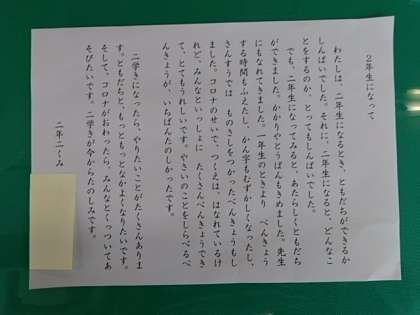 ２年生になって
わたしは、二年生になるとき、ともだちができるか
しんぱいでした。それに、二年生になると、どんなこ
とをするのか、とってもしんぱいでした。
でも、二年生になってみると、あたらしくともだち
ができました。かかりやとうばんもきめました。先生
にもなれてきました。一年生のときより　べんきょう
する時間もふえたし、かん字もむずかしくなったし、
さんすうでは　ものさしをつかったべんきょうもし
ました。コロナのせいで、つくえは、はなれているけ
れど、みんなといっしょに　たくさんべんきょうでき
て、とてもうれしいです。やさいのことをしらべるべ
んきょうが、いちばんたのしかったです。
二学きになったら、やりたいことがたくさんありま
す。ともだちと、もっともっとなかよくなりたいです。
そして、コロナがおわったら、みんなとくっついてあ
そびたいです。二学きが今からたのしみです。
二年二くみ